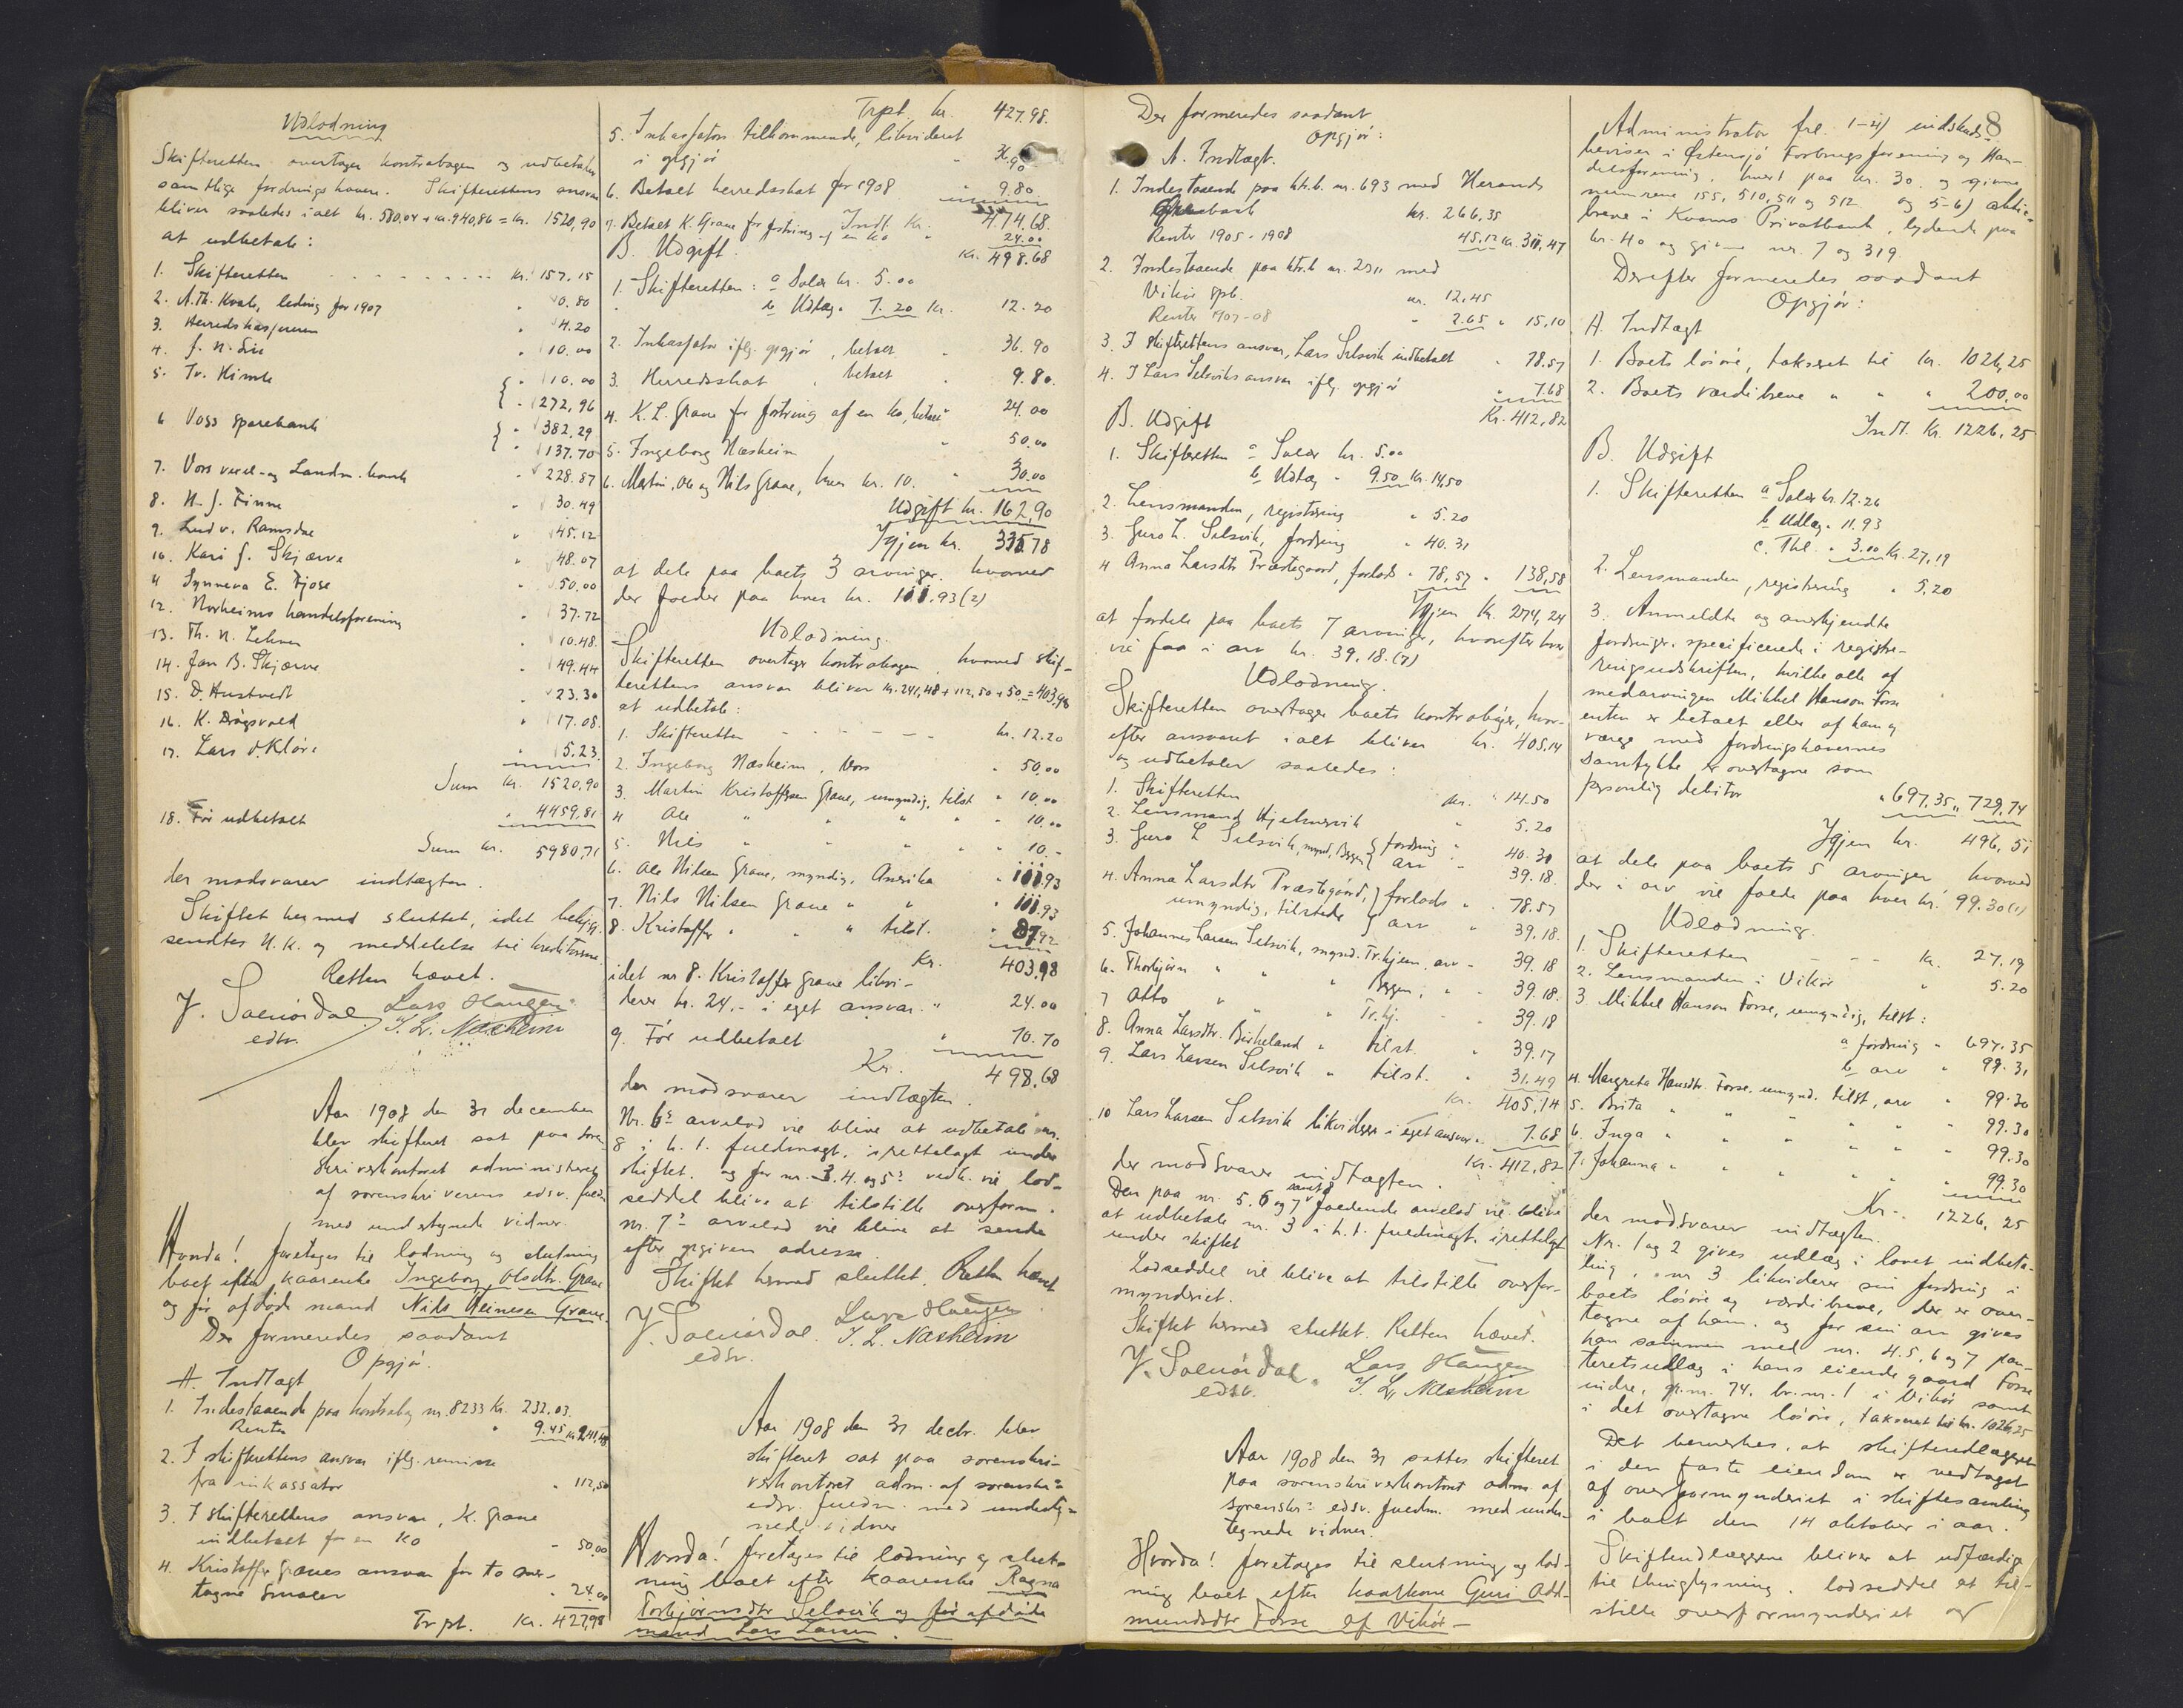 Udlodning
Skifteretten overtager kontrabogen og udbetaler
samtlige fordringshavere. Skifterettens ansvar
bliver saaledes ialt kr. 580,04 + kr. 940,86 = kr. 1520,90
at udbetale:
1. Skifteretten - - - - - - - - kr. 157,15
2. A. Th. Kvale, leding for 1907 " 0.80
3. Herredskassereren " 4.20
4. J. N. Lie " 10.00
5. Tr. Himle { " 10.00
{ " 272,96
6 Voss sparebank { " 382,29
{ " 137.70
7. Vors veksel- og Landm. bank " 228.87
8. H. J. Finne " 30.49
9. Ludv. Ramsdal " 45.12
10. Kari J. Skjærve " 48.07
11 Synneva E. Fjose " 50.00
12. Norheims handelsforening " 37.72
13. Th. N. " 10.48
14. Jan B. Skjærve " 49.44
15. D. Hustvedt " 23.30
16. K. Drøgsvold " 17.08
17. Lars O. Kløve " 5.23
Sum kr. 1520,90
18. Før udbetalt " 4459,81
Sum kr. 5980,71
der modsvarer indtægten.
Skiftet hermed sluttet, idet
sendtes N. K. og meddelelse til kreditorerne.
Retten hævet.
Lars Haugen
edsv. T. L. Næsheim
Aar 1908 den 31 december
blev skifteret sat paa soren-
skriverkontoret administreret
af sorenskriverens edsv. fuldm.
med undertegnede vidner.
Hvorda! foretages til lodning og slutning
boet efter kaarenke Ingeborg Olsdtr. Graue
og før afdøde mand Nils Heinesen Graue.
Der formeredes saadant
Opgjør.
A. Indtægt
1. Indestaaende paa kontrabog nr. 8233 kr. 232.03.
Renter " 9.45 kr. 241,48
2. I skifterettens ansvar iflg. remisse
fra inkassator " 112,50
3. I skifterettens ansvar, K. Graue
indbetalt for en ko " 50,00
4. Kristoffer Graues ansvar for to over-
tagne smaler " 24,00
Trpt. Kr. 427,98
Trpt. kr. 427.98.
5. Inkassators tilkommende, likvideret
i opgjør " 36.90
6. Betalt herredsskat for 1908 " 9.80
Indt. Kr. 474,68.
7. Betalt K. Graue for fostring af en ko " 24.00
Kr. 498.68
B. Udgift.
1. Skifteretten: a Salær kr. 5.00
" b Udlæg " 7.20 Kr. 12.20
2. Inkassator iflg. opgjør, betalt " 36.90
3. Herredsskat, betalt " 9.80.
4. K. L. Graue for fostring af en ko, betalt " 24.00
5. Ingeborg Næsheim " 50.00
6. Martin, Ole og Nils Graue, hver kr. 10. " 30.00
Udgift kr. 162,90
Igjen kr. 335.78
at dele paa boets 3 arvinger, hvorved
der falder paa hver kr. 111.93 (2)
Udlodning.
Skifteretten overtager kontrabogen, hvorved skif-
terettens ansvar bliver kr. 241,48 + 112,50 + 50,- = 403,98
at udbetale:
1. Skifteretten - - - - - - kr. 12.20
2. Ingeborg Næsheim, Vors " 50,00
3. Martin Kristoffersen Graue, umyndig, tilst " 10,00
4 Ole " " " " " 10,00
5. Nils " " " " " 10.-
6. Ole Nilsen Graue, myndig, Amerika " 111.93
7. Nils Nilsen Graue " " " 111.93
8. Kristoffer " " " tilst. " 87.92
Kr. 403,98
idet nr 8. Kristoffer Graue likvi-
derer kr. 24,- i eget ansvar. " 24.00
9. Før udbetalt " 70.70
Kr. 498.68
der modsvarer indtægten.
Nr. 6s arvelod vil blive at udbetale nr.
8 i h. t. fuldmagt, i rettelagt under
skiftet, og for nr. 3. 4. og 5s vedk. vil lod-
seddel blive at tilstille overform.
nr. 7s arvelod vil blive at sende
efter opgiven adresse.
Skiftet hermed sluttet. Retten hævet
Lars Haugen
edsv. T. L. Næsheim
Aar 1908 den 31 decbr. blev
skifteret sat paa sorenskri-
verkontoret adm. af sorenskrs
edsv. fuldm. med underteg-
nede vidner
Hvorda! foretages til lodning og slut-
ning boet efter kaarenke Ragna
Torbjørnsdtr Selsvik og før afdøde
mand Lars Larsen.
8
Der formeredes saadant
Opgjør:
A. Indtægt.
1. Indestaaende paa ktr.b. nr. 693 med Herands
sparebank kr. 266,35
Renter 1905-1908 45,12 kr. 311,47
2. Indestaaende paa ktr.b nr. 2311 med
Vikør spb. kr. 12,45
Renter 1907-08 " 2.65 " 15,10
3. I skifterettens ansvar, Lars Selsvik indbetalt " 78.57
4. I Lars Selsviks ansvar iflg. opgjør " 7.68
Kr. 412,82
B. Udgift
1. Skifteretten a Salær kr. 5.00
b Udlæg " 9.50 kr. 14,50
2. Lensmanden, registrering " 5.20
3. Guro L. Selsvik, fordring " 40.31
4 Anna Larsdtr Præstegaard, forlods " 78,57 " 138,58
Igjen kr. 274,24
at fordele paa boets 7 arvinger, hvorefter hver
vil faa i arv kr. 39.18.(7)
Udlodning.
Skifteretten overtager boets kontrabøger, hvor-
efter ansvaret ialt bliver kr. 405,14
og udbetaler saaledes:
1. Skifteretten kr. 14.50
2. Lensmand Hjelmervik " 5.20
3. Guro L Selsvik, mynd, Bergen { fordring " 40.31
{ arv " 39.18.
4. Anna Larsdtr Præstegård, } forlods " 78.57
umyndig, tilstede } arv " 39.18.
5. Johannes Larsen Selsvik, mynd. Tr.hjem, arv " 39.18
6. Thorbjørn " " " Bergen, " " 39.18.
7 Otto " " " Tr.hj. " " 39.18
8. Anna Larsdtr. Birkeland " tilst. " 39.17
9. Lars Larsen Selsvik " tilst. " 31.49
kr. 405,14
10 Lars Larsen Selsvik likviderer i eget ansvar " 7.68
Kr. 412,82
der modsvarer indtægten.
Den paa nr. 5. 6 og 7 samt 8 faldende arvelod vil blive
at udbetale nr. 3 i h. t. fuldmagt, i rettelagt
under skiftet
Lodseddel vil blive at tilstille overfor-
mynderiet.
Skiftet hermed sluttet. Retten hævet.
Lars Haugen
edsv. T. L. Næsheim
Aar 1908 den 31 sattes skifteret
paa sorenskriverkontoret adm. af
sorenskrs edsv. fuldm. med under-
tegnede vidner.
Hvorda! foretages til slutning og lod-
ning boet efter kaarkone Guri Odd-
mundsdtr Forse af Vikør –
Administrator frl. 1-4) indskuds-
beviser i Østensjø Forbrugsforening og Han-
delsforening, hvert paa kr. 30, og givne
numrene 155, 510, 511 og 512 og 5-6) aktie-
breve i Kvams Privatbank, lydende paa
kr. 40 og givne nr. 7 og 319.
Derefter formeredes saadant
Opgjør:
A. Indtægt
1. Boets løsøre, takseret til kr. 1026,25
2. Boets værdibreve " " " 200,00
Indt. Kr. 1226,25
B. Udgift
1. Skifteretten a Salær kr. 12.26
b Udlæg " 11.93
c. Thl. " 3.00 kr. 27,19
2. Lensmanden, registrering " 5,20
3. Anmeldte og anerkjendte
fordringer specificerede i registre-
ringsudskriften, hvilke alle af
medarvingen Mikkel Hanson Forse
enten er betalt eller af ham og
værge med fordringshavernes
samtykke er overtagne som
personlig debitor " 697,35 " 729,74
Igjen kr. 496,51
at dele paa boets 5 arvinger, hvorved
der i arv vil falde paa hver kr. 99.30 (1)
Udlodning.
1. Skifteretten - - - kr. 27.19
2. Lensmanden i Vikør " 5.20
3 Mikkel Hanson Forse, umyndig, tilst:
a fordring " 697.35
b arv " 99.31
4. Margreta Hansdtr. Forse, umynd. tilst, arv " 99.30
5. Brita " " " " " 99.30
6. Inga " " " " " 99.30
7. Johanna " " " " " 99.30
Kr. 1226,25
der modsvarer indtægten.
Nr. 1 og 2 gives udlæg i lovet indbeta-
ling, nr 3 likviderer sin fordring i
boets løsøre og værdibreve, der er over-
tagne af ham, og for sin arv gives
han sammen med nr. 4. 5, 6 og 7 pan-
teretsudlæg i hans eiende gaard Forse
indre, gr.nr. 74, br.nr. 1 i Vikør samt
i det overtagne løsøre, takseret til kr. 1026,25
Det bemerkes, at skifteudlægget
i den faste eiendom er vedtaget
af overformynderiet i skiftesamling
i boet den 14 oktober i aar.
Skifteudlæggene bliver at udfærdige
til thinglysning, lodseddel at til-
stille overformynderiet og